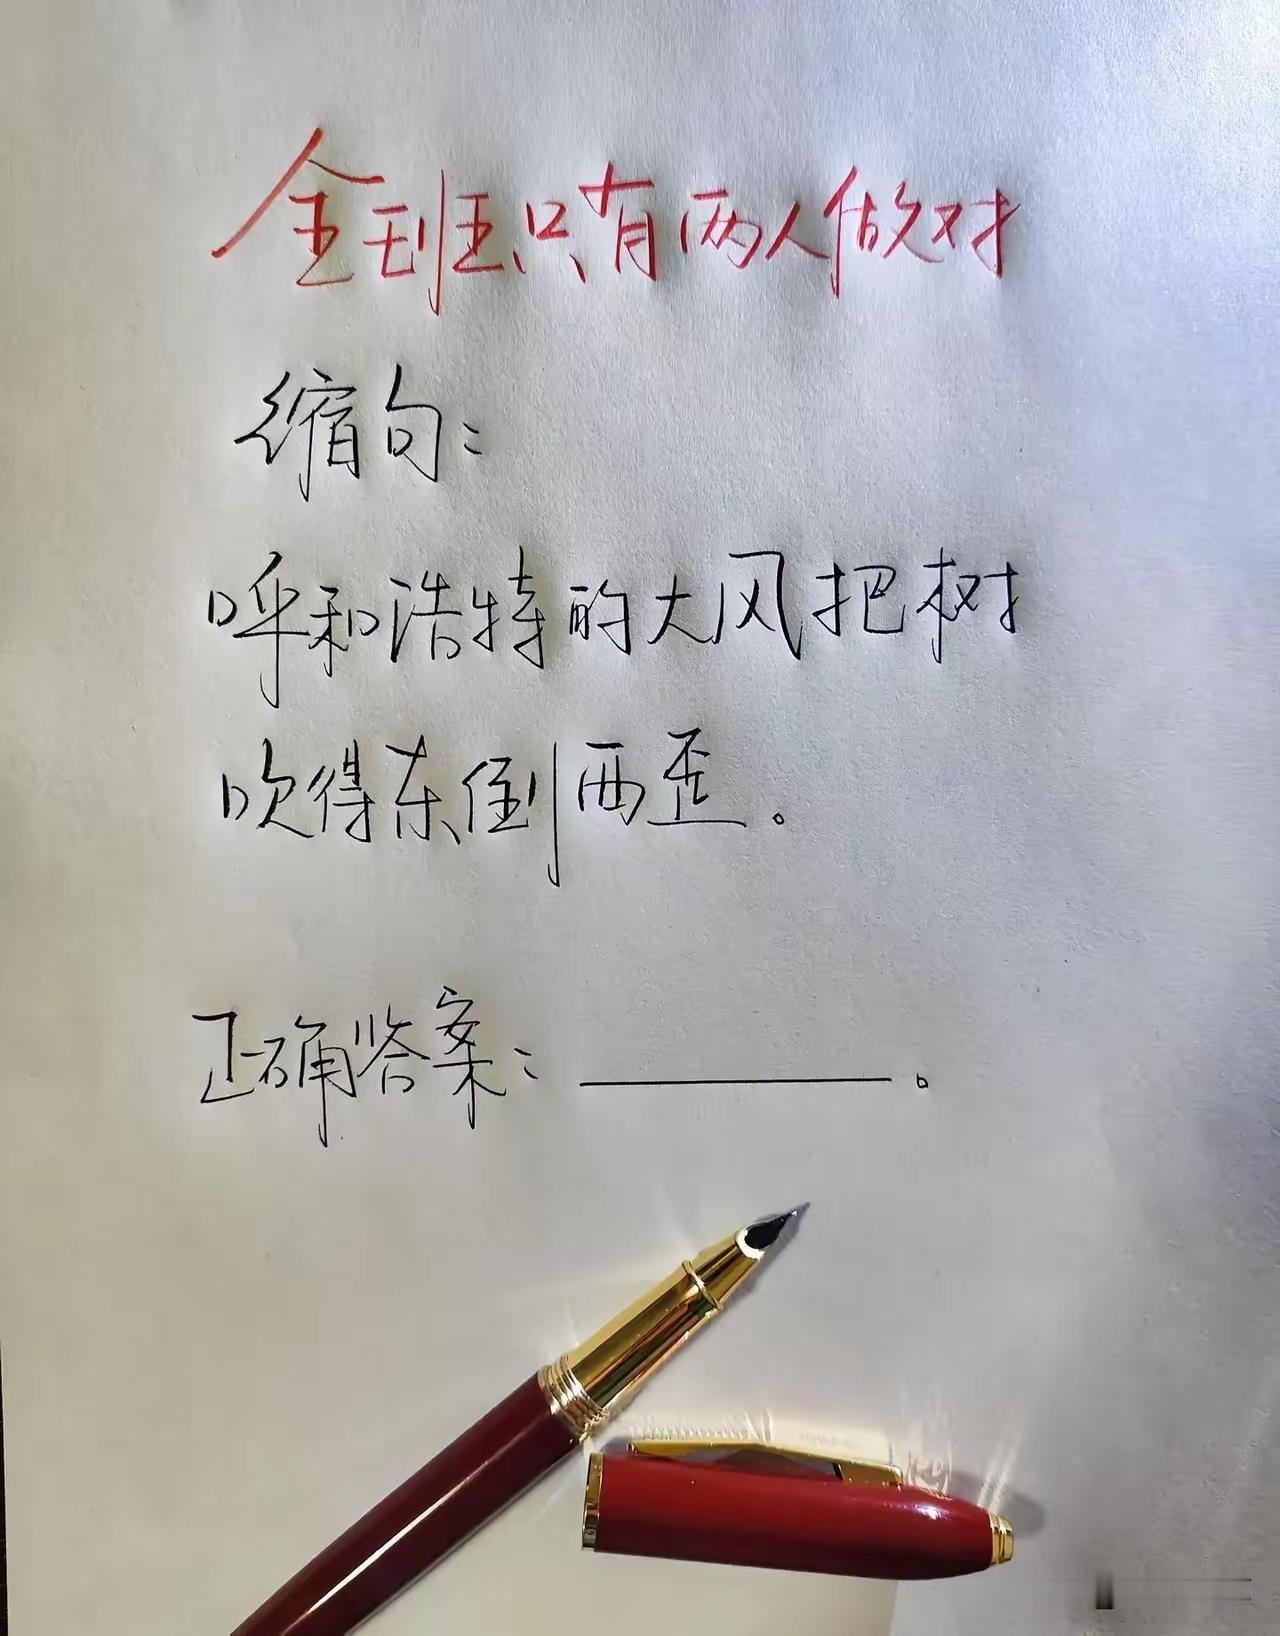 全班只有两人做对
缩句：
呼和浩特的大风把树
吹得东倒西歪。
正确答案：＿＿＿＿。